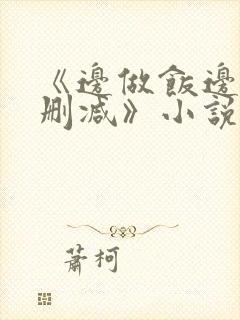 《邊做飯邊
刪減》小說
蕭柯